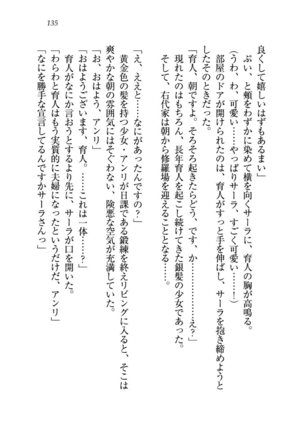 135
良くして嬉しいはずもあるまい」
ぷい、と頬をわずかに染めて横を向くサーラに、育人の胸が高鳴る。
（うわ、わ、可愛い……やっぱりサーラ、すごく可愛い………！）
部屋のドアが開けられたのは、育人がすっと手を伸ばし、サーラを抱き締めようと
したそのときだった。
「育人、朝ですよ。そろそろ起きたらどう、です、か…………え？」
現れたのはもちろん、長年育人を起こし続けてきた銀髪の少女であった。
そして、右代家は朝から修羅場を迎えることとなる……。
「え、ええと……なにがあったんですの？」
黄金色の髪を持つ少女・アンリが日課である鍛練を終えリビングに入ると、そこは
爽やかな朝の雰囲気にはそぐわない、険悪な空気が充満していた。
「お、おはよう、アンリ」
「おはようございます、育人。……これは一体……？」
育人がなにか言おうとするより先に、サーラが口を開いた。
「わらわと育人はもう実質的に夫婦になったというだけだ、アンリ」
「なにを勝手な宣言してるんですかサーラさんっ」